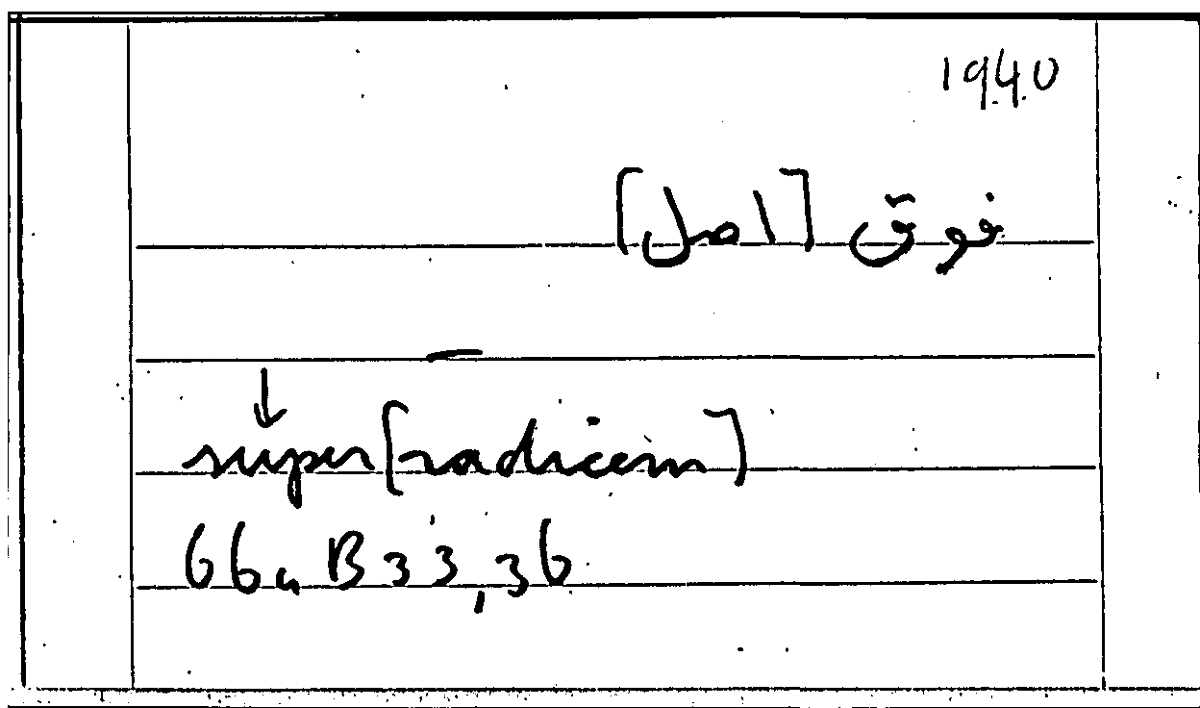 1940
فوق [اصل]
super [radicem]
66a B33,36